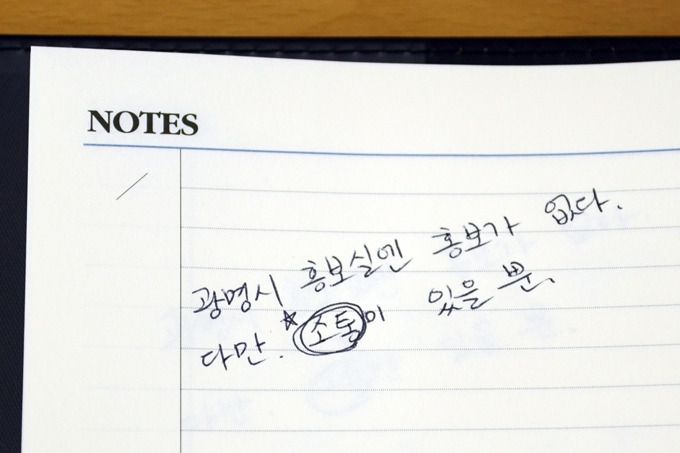 NOTES
광명시 홍보실엔 홍보가 없다.
다만. ★소통이 있을 뿐.